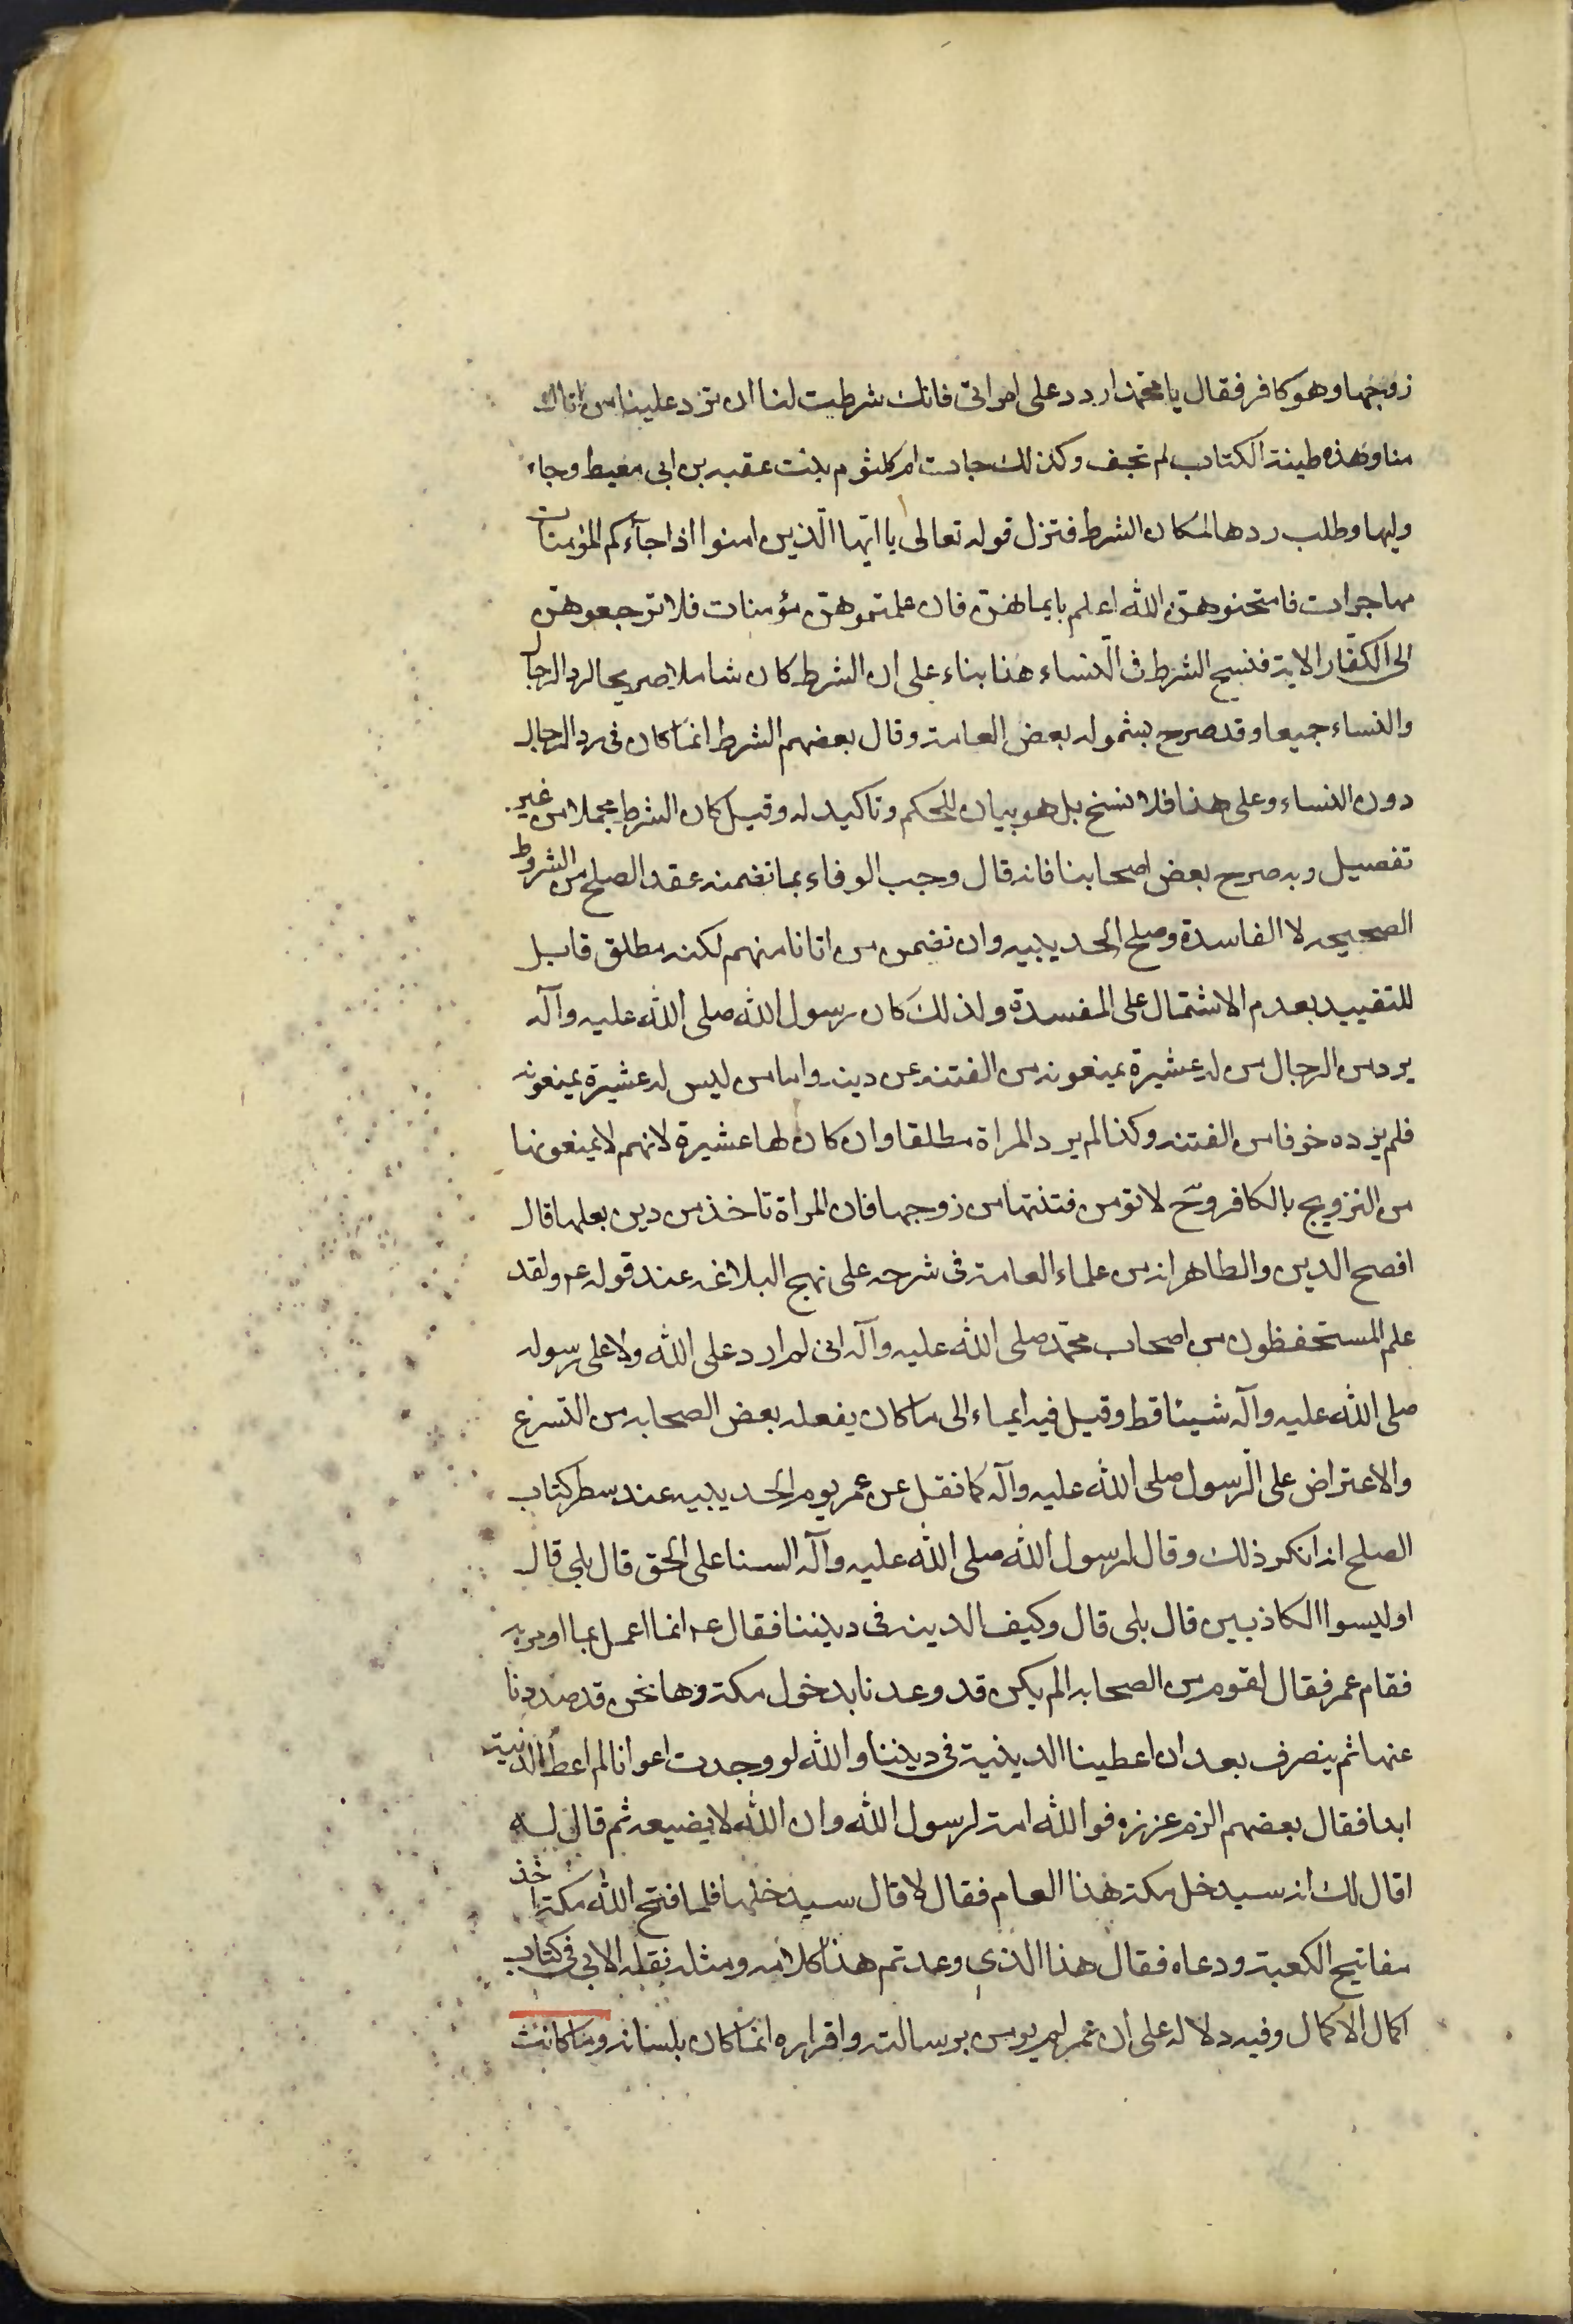 زوجها وهو كافر فقال يا محمد اردد على امراتى فانك شرطت لنا ان ترد علينا من اتاك
منا وهذه طينة الكتاب لم تجف وكذلك جاءت ام كلثوم بنت عقبه بن ابى معيط وجاء
وليها وطلب ردها لمكان الشرط فنزل قوله تعالى يا ايّها الّذين امنوا اذا جآءكم المؤمنات
مهاجرات فامتحنوهنّ الله اعلم بايمانهنّ فان علمتموهنّ مؤمنات فلا ترجعوهنّ
الى الكفّار الاية فنسخ الشرط فى النساء هذا بناء على ان الشرط كان شاملا صريحا لرد الرجال
والنساء جميعا وقد صرح بشموله بعض العامة وقال بعضهم الشرط انما كان فى رد الرجال
دون النساء وعلى هذا فلا نسخ بل هو بيان للحكم وتاكيد له وقيل كان الشرط مجملا من غير
تفصيل وبه صرح بعض اصحابنا فانه قال وجب الوفاء بما تضمنه عقد الصلح من الشروط
الصحيحه لا الفاسدة وصلح الحديبيه وان تضمن من اتانا منهم لكنه مطلق قابل
للتقييد بعدم الاشتمال على المفسدة ولذلك كان رسول الله صلى الله عليه وآله
يرد من الرجال من له عشيرة يمنعونه من الفتنه عن دينه واما من ليس له عشيرة يمنعونه
فلم يرده خوفا من الفتنه وكذا لم يرد المراة مطلقا وان كان لها عشيرة لانهم لا يمنعونها
من التزويج بالكافر وح لا تومن فتنتها من زوجها فان المراة تاخذ من دين بعلها قال
افصح الدين والظاهر انه من علماء العامة فى شرحه على نهج البلاغه عند قوله ع ولقد
علم المستحفظون من اصحاب محمّد صلى الله عليه وآله انى لم ارد على الله ولا على رسوله
صلى الله عليه وآله شيئا قط وقيل فيه ايماء الى ما كان يفعله بعض الصحابه من التسرع
والاعتراض على الرسول صلى الله عليه وآله كما نقل عن عمر يوم الحديبيه عند سطر كتاب
الصلح انه انكر ذلك وقال لرسول الله صلى الله عليه وآله السنا على الحق قال بلى قال
اوليسوا الكاذبين قال بلى قال وكيف الدينه فى ديننا فقال ع انما اعمل بما اومر به
فقام عمر فقال لقوم من الصحابه الم يكن قد وعدنا بدخول مكة وها نحن قد صددنا
عنها ثم ينصرف بعد ان اعطينا الدينية فى ديننا والله لو وجدت اعوانا لم اعط الدنية
ابدا فقال بعضهم الزم عزره فوالله انه لرسول الله وان الله لا يضيعه ثم قال له
اقال لك انه سيدخل مكة هذا العام فقال لا قال سيدخلها فلما فتح الله مكة اخذ
مفاتيح الكعبة ودعاه فقال هذا الذى وعدتم هذا كلامه ومثله نقله الابى فى كتاب
اكمال الاكمال وفيه دلاله على ان عمر لم يومن برسالته واقراره انما كان بلسانه وما كانت